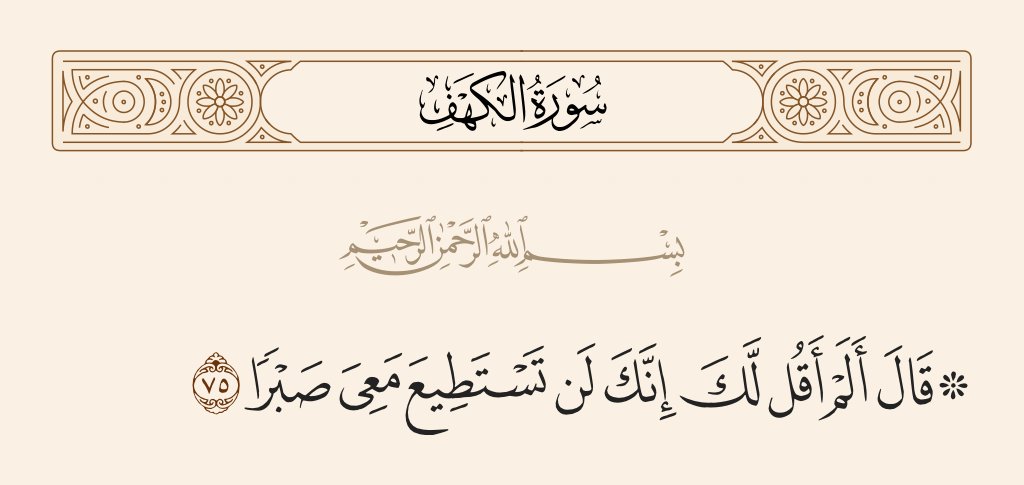 سُورَةُ الكَهْفِ
بِسْمِ ٱللَّهِ ٱلرَّحْمَٰنِ ٱلرَّحِيمِ
۞ قَالَ أَلَمْ أَقُل لَّكَ إِنَّكَ لَن تَسْتَطِيعَ مَعِىَ صَبْرًا ٧٥